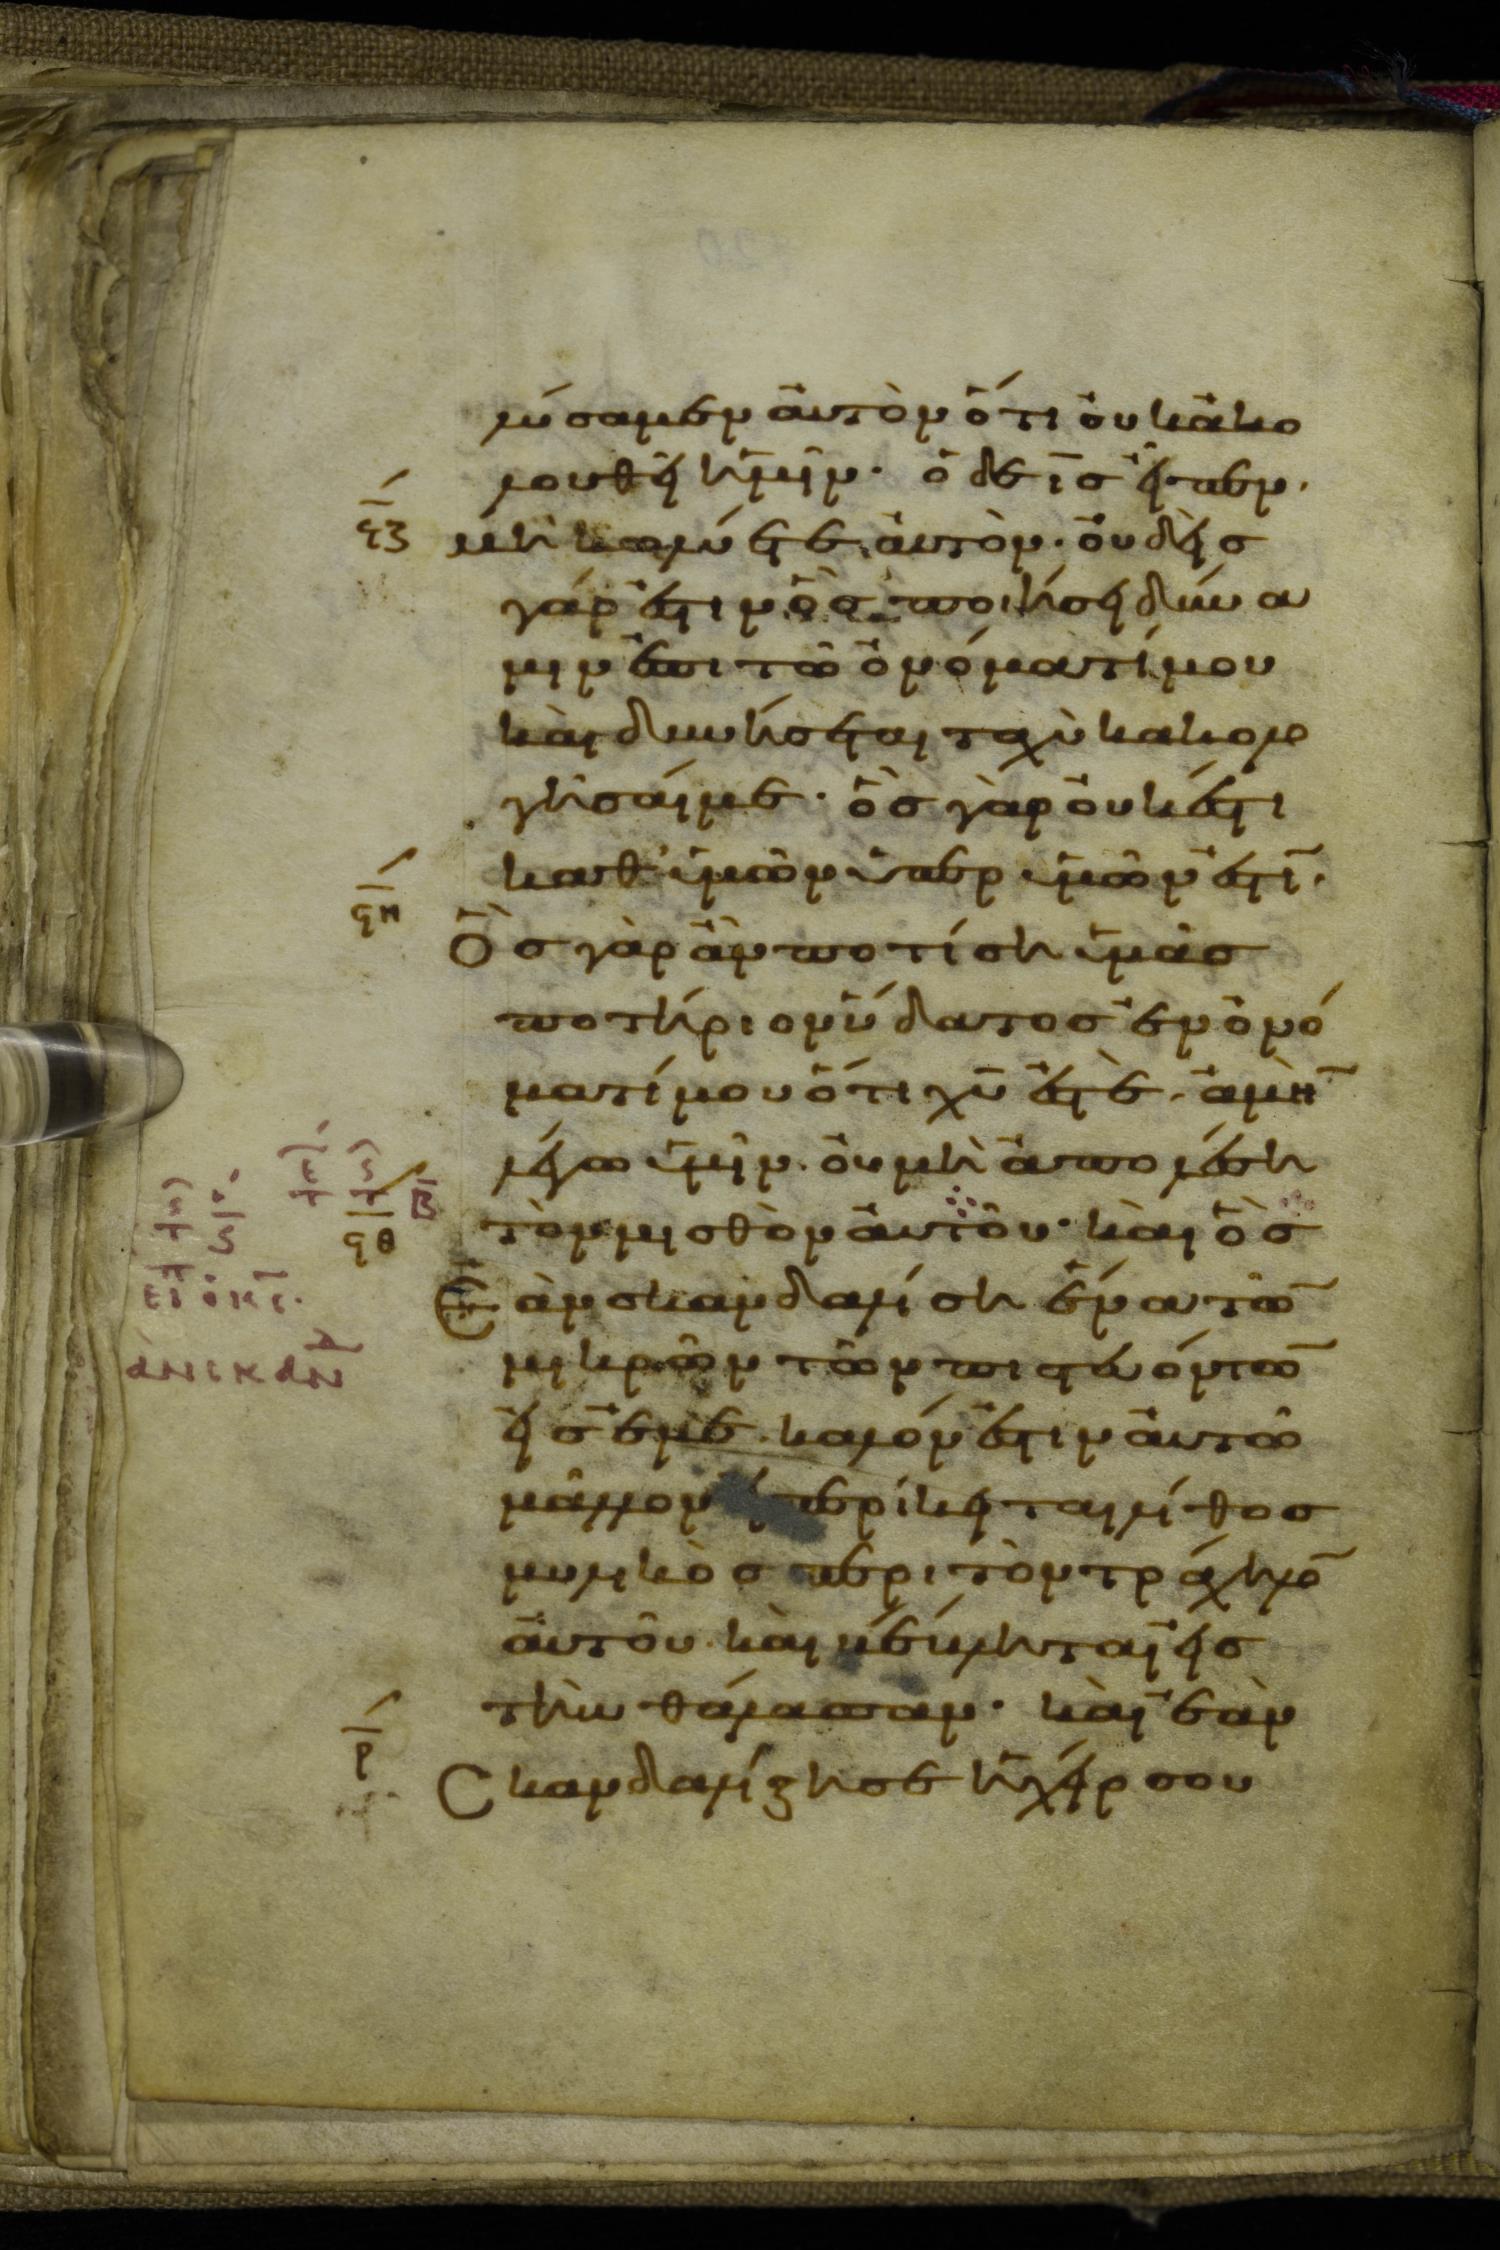 λύσαμεν ἀυτὸν ὅτι ὀυκ ἀκο
λουθεῖ ἡμῖν· ὁ δὲ ῑσ εἶπεν·
ϟζ μὴ κολύετε ἀυτὸν· ὀυδεὶσ
γάρ ἐστιν ὃσ ποιήσει δύνα
μιν ἐπι τῶ ὀνόματί μου
καὶ δυνήσεται ταχὺ κακολο
γῆσαί με· ὃσ γὰρ ὀυκ ἔστι
ϟη καθ' ἡμῶν ὑπερ ἡμῶν ἐστῑ·
Ὃσ γὰρ ἂν ποτίση ὑμᾶσ
ποτήριον ὕδατοσ ἐν ὀνό
ματί μου ὅτι χ̅υ̅ ἐστὲ· ἀμὴ̅
λέγω ὑμῖν· ὀυ μὴ ἀπολέση
ϟθ Β τὸν μισθὸν ἀυτοῦ· καὶ ὃσ
Ἐὰν σκανδαλίση ἕνα τῶ̅
μικρῶν τῶν πιστευόντω̅
εἰσ ἐμὲ· καλόν ἐστιν ἀυτῶ
μᾶλλον εἰ περίκειται λίθοσ
μυλικὸσ περι τὸν τράχηλο̅
ἀυτοῦ· καὶ βέβληται εἰσ
τὴν θάλασσαν· καὶ ἐὰν
ρ Σκανδαλίζη σε ἡ χείρ σου